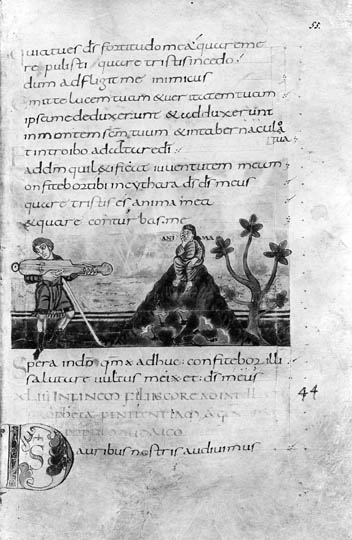 55
Quia tu es ds fortitudo mea quare me
repulisti quare tristis incedo
dum adfligit me inimicus
Emitte lucem tuam & ueritatem tuam
ipsa me deduxerunt & adduxerunt
in montem scm tuum & in tabernacula
tua
Et introibo ad altare di
ad dm qui l&ificat iuuentutem meam
Confitebor tibi in cythara ds ds meus
quare tristis es anima mea
& quare conturbas me
ANI MA
Spera in dno qm adhuc confitebor illi
salutare uultus mei et ds meus
44
XLIII IN FINEM FILIIS CORE AD INTELL
PROPHETA PENITENTIAM
auribus nostris audiuimus